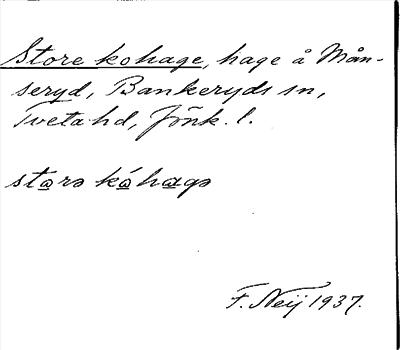 Store kohage, hage å Mån-
seryd, Bankeryds sn,
Tveta hd, Jönk. l.
sta̲rə ká̲ha̲gə
F. Neij 1937.